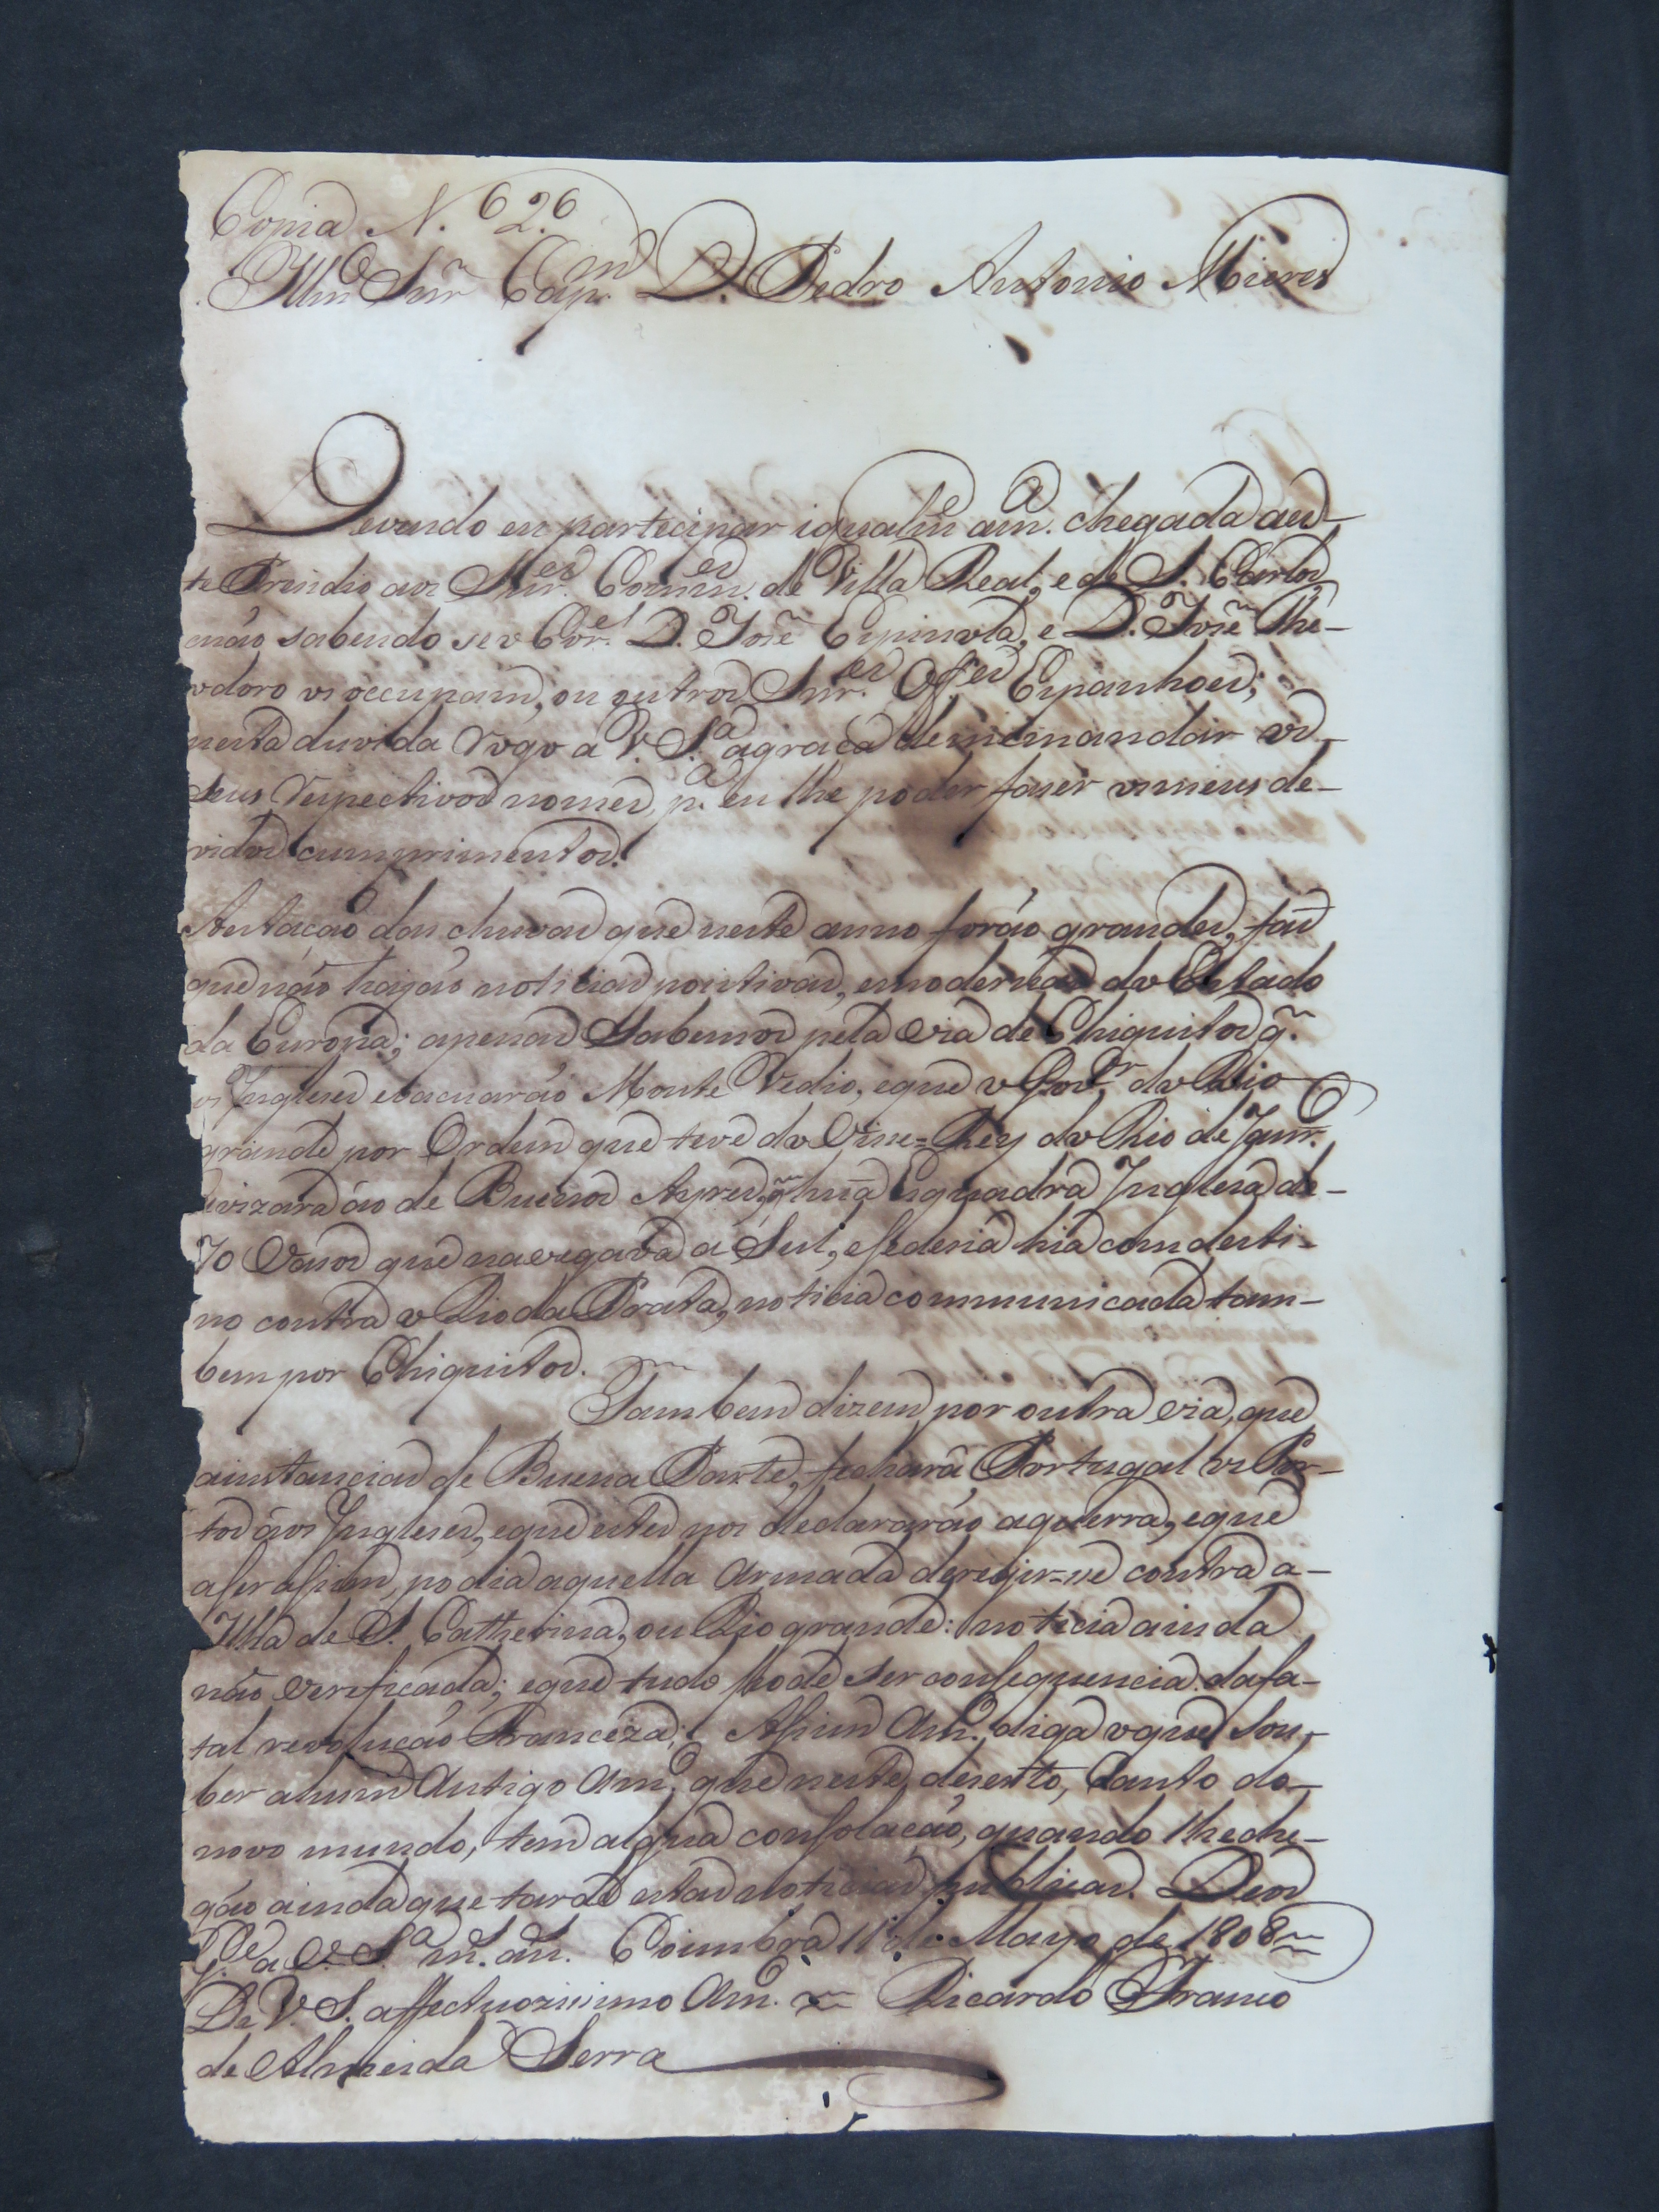 Copia N. 626
Illmo Snr Capm D. Pedro Antonio Mieres
Devendo eu partecipar igualme am.a chegada aes-
te Prezidio aos Snr.es Comm.es de Villa Real, e de S. Carlos,
enáo sabendo se o Cor.el D. Jose Espinola, e D. Jose The-
odoro os occupam, ou outros Snr.es Offes Espanhoes;
nesta duvida Rogo á V. S.a agraça demeinmandar os
seus Respectivos nomes, p.a eu lhe poder fazer osmeus de-
vidos cumprimentos.
Aestacáo das chuvas que neste anno foráo grandes, faz
que náo hajáo noticias pozitivas, emodernas do Estado
da Europa; apenas Sabemos pela via de Chiquitos q.
os Inglezes evacuaráo Monte Vedio, eque o Gov.or do Rio
grande por Ordem que teve do Vise=Rey do Rio de Janr.o
avizara áo de Buenos Ayres, q huã Esquadra Ingleza de-
70 Vazos que navegava á Sul, esedezia hia com desti-
no contra o Rio da Prata, noticia communicada tam-
bem por Chiquitos.
Tambem dizem por outra via, que
ainstancias de Buena Parte, fechará Portugal os Por-
tos aos Inglezes, eque estes nos declararáo aguerra, eque
aser asim, podia aquella Armada deregir=se contra a-
Ilha de S. Catherina, ou Rio grande: noticia ainda
náo verificada; eque tudo pode ser consequencia dafa-
tal revolucáo Franceza; Asim Am.o diga oque Sou-
ber ahum Antigo Am.o que neste dezerto, Canto do-
novo mundo, tem algua consolacáo, quando lheche-
gáo ainda que tarde estas noticias publicas. Deos
G.e a V. S.a m. an. Coimbra 11 de Mayo de 1808
De V. S. affectuozissimo Am.o Ricardo Franco
de Almeida Serra